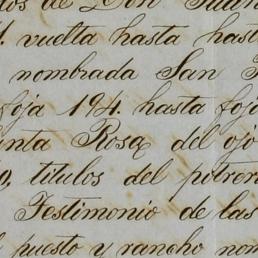 de Don Juan
vuelta hasta
nombrada San
foja 194. hasta foj
nta Rosa del ojo
titulos del potrer
Testimonio de las
puesto y rancho nom